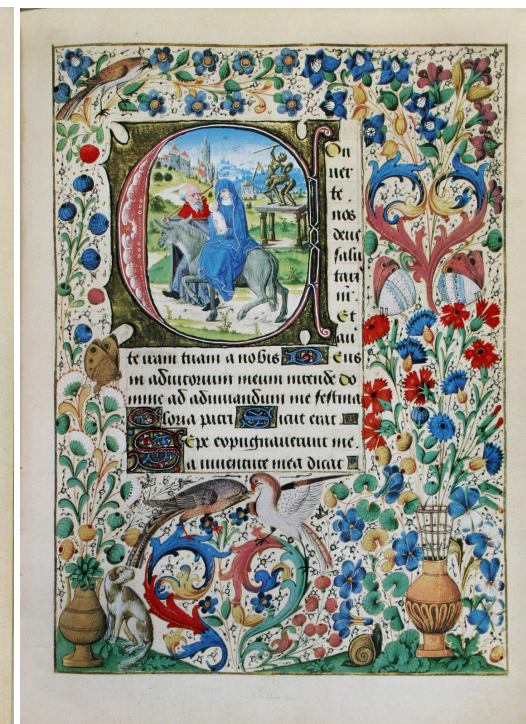 COn
uer
te .
nos
deus
salu
tari
nr̄.
Et
auer
te iram tuam a nobis Deus
in adiutorium meum intende do
mine ad adiuuandum me festina
Gloria patri Sicut erat
Sepe expugnauerunt me
a iuuentute mea dicat